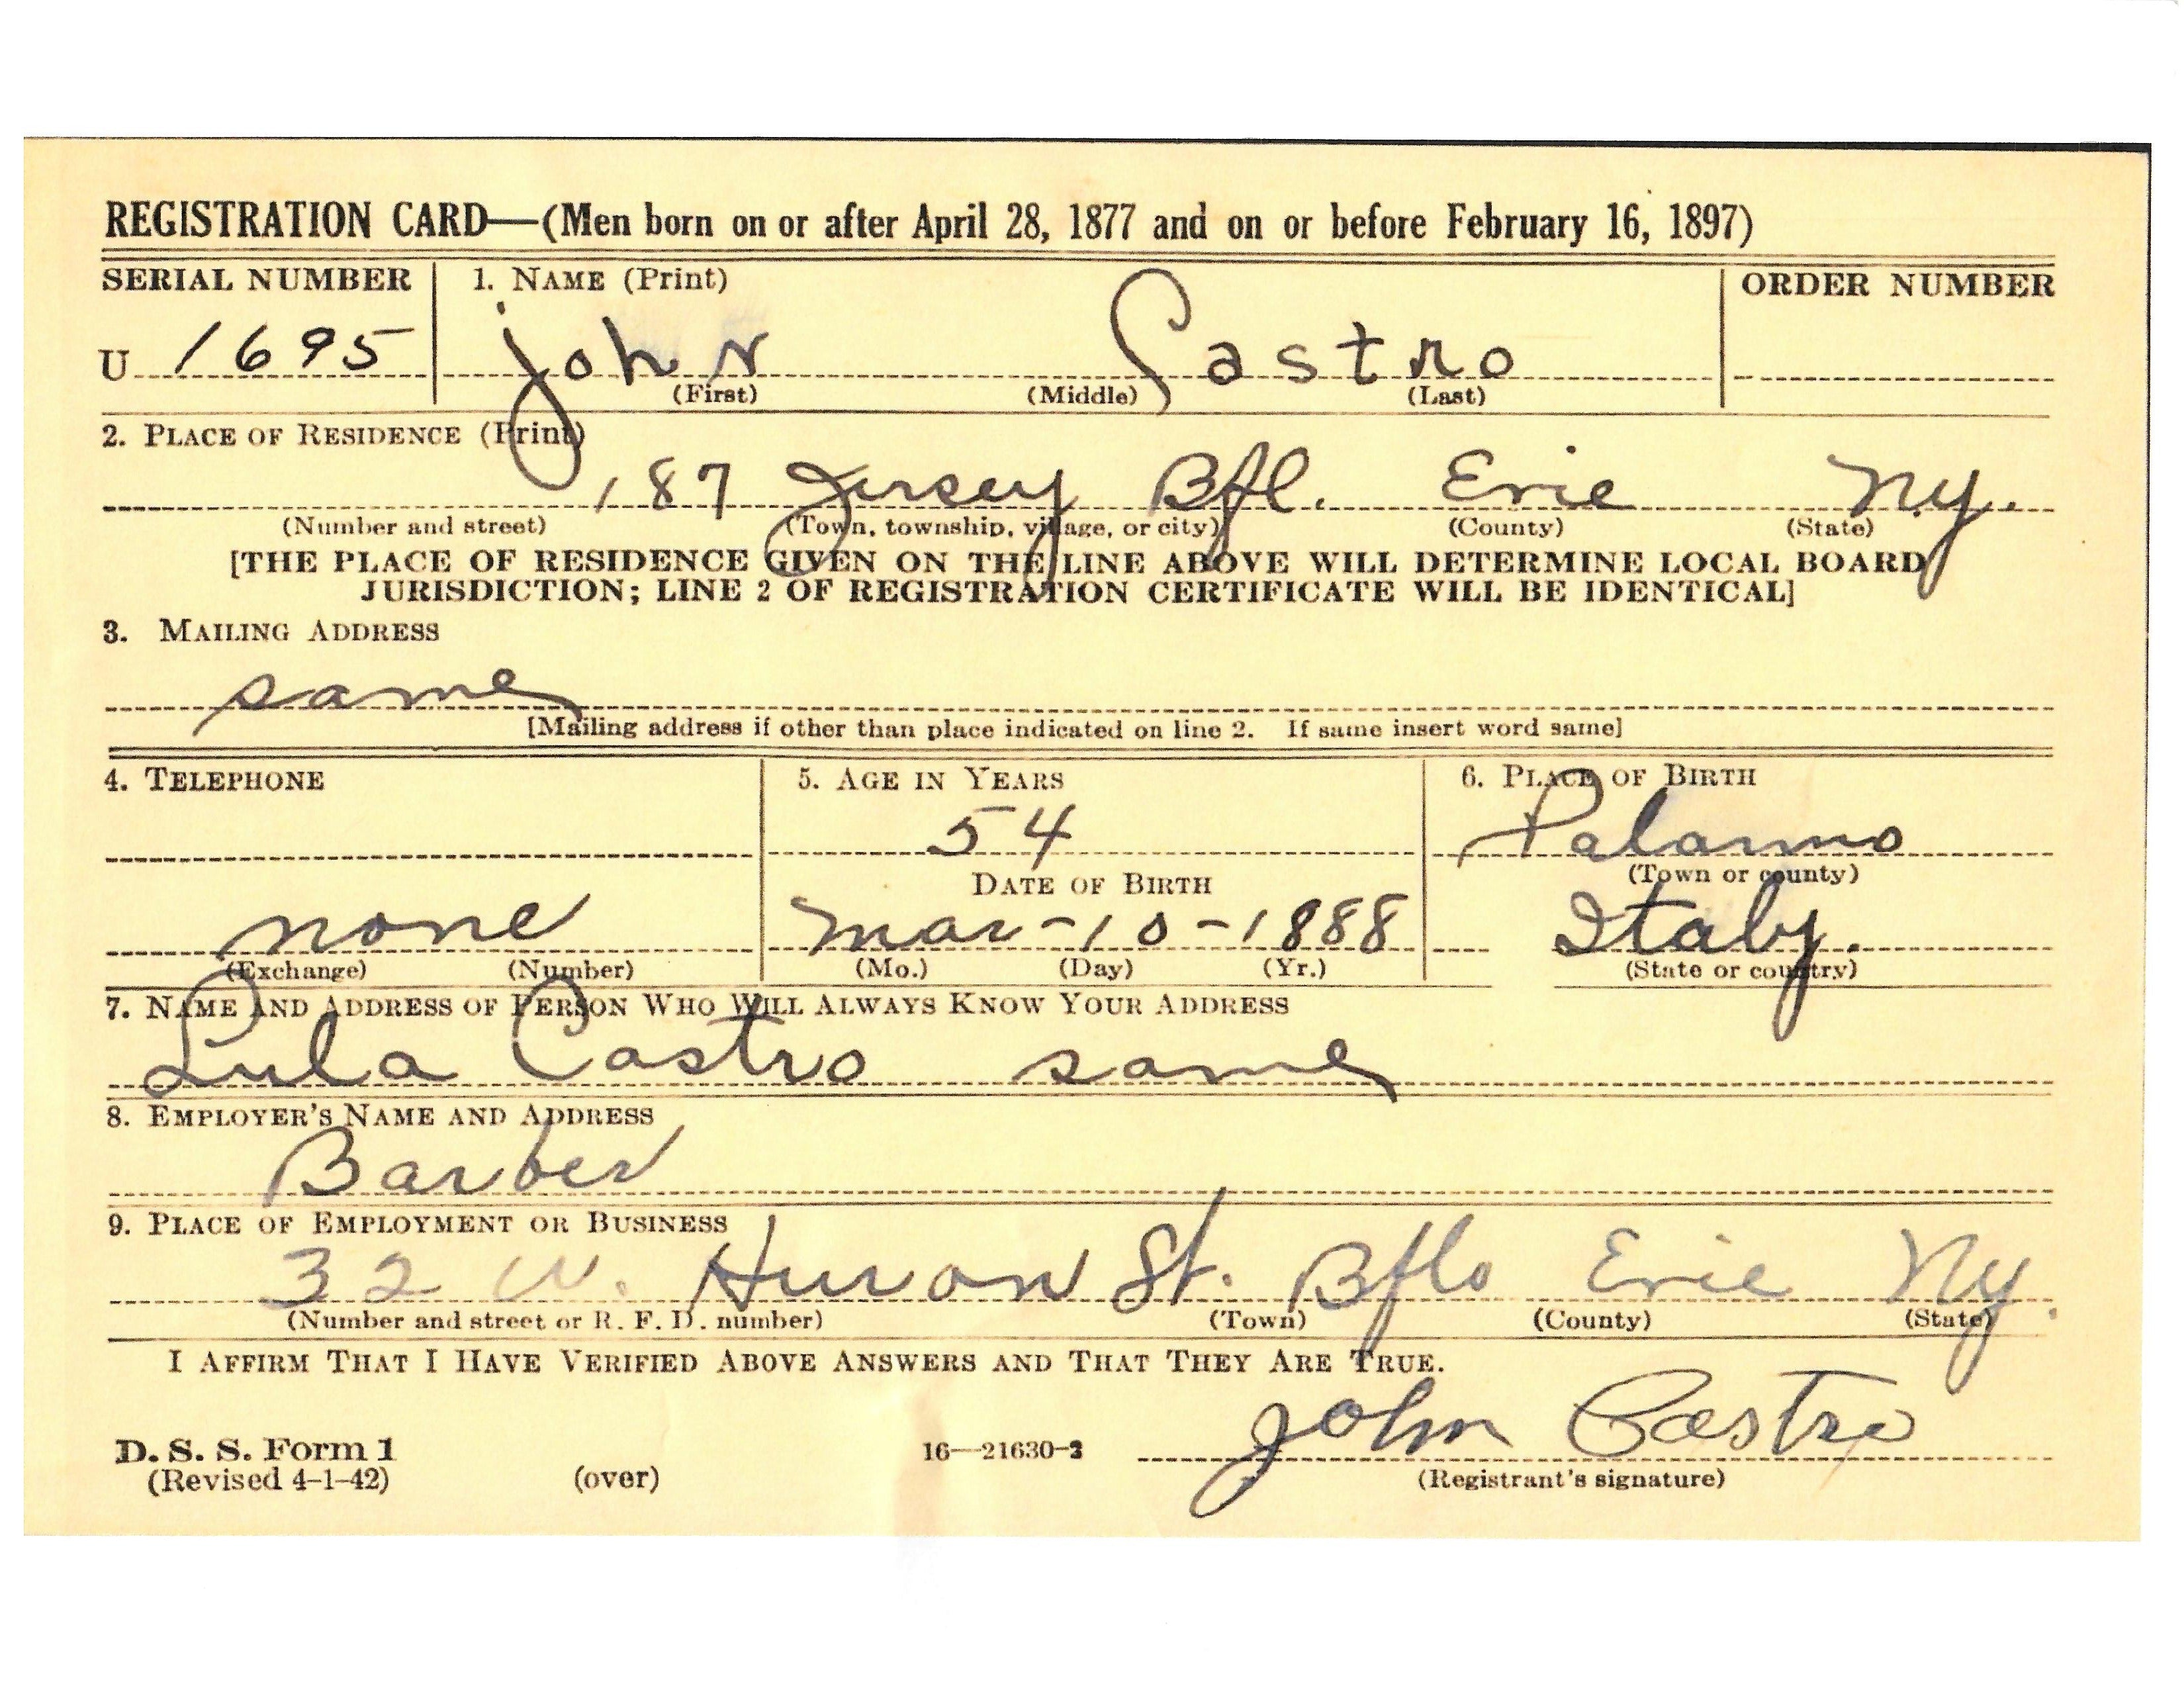 REGISTRATION CARD—(Men born on or after April 28, 1877 and on or before February 16, 1897)
SERIAL NUMBER 1. NAME (Print) ORDER NUMBER
U 1695 John Castro
(First) (Middle) (Last)
2. PLACE OF RESIDENCE (Print)
187 Jersey Bfl. Erie N.y.
(Number and street) (Town, township, village, or city) (County) (State)
[THE PLACE OF RESIDENCE GIVEN ON THE LINE ABOVE WILL DETERMINE LOCAL BOARD
JURISDICTION; LINE 2 OF REGISTRATION CERTIFICATE WILL BE IDENTICAL]
3. MAILING ADDRESS
same
[Mailing address if other than place indicated on line 2. If same insert word same]
4. TELEPHONE 5. AGE IN YEARS 6. PLACE OF BIRTH
54 Palarmo
DATE OF BIRTH (Town or county)
none Mar-10-1888 Italy.
(Exchange) (Number) (Mo.) (Day) (Yr.) (State or country)
7. NAME AND ADDRESS OF PERSON WHO WILL ALWAYS KNOW YOUR ADDRESS
Lula Castro same
8. EMPLOYER'S NAME AND ADDRESS
Barber
9. PLACE OF EMPLOYMENT OR BUSINESS
32 W. Huron St. Bflo Erie Ny.
(Number and street or R. F. D. number) (Town) (County) (State)
I AFFIRM THAT I HAVE VERIFIED ABOVE ANSWERS AND THAT THEY ARE TRUE.
John Castro
D. S. S. Form 1 16—21630-2
(Revised 4-1-42) (over) (Registrant's signature)